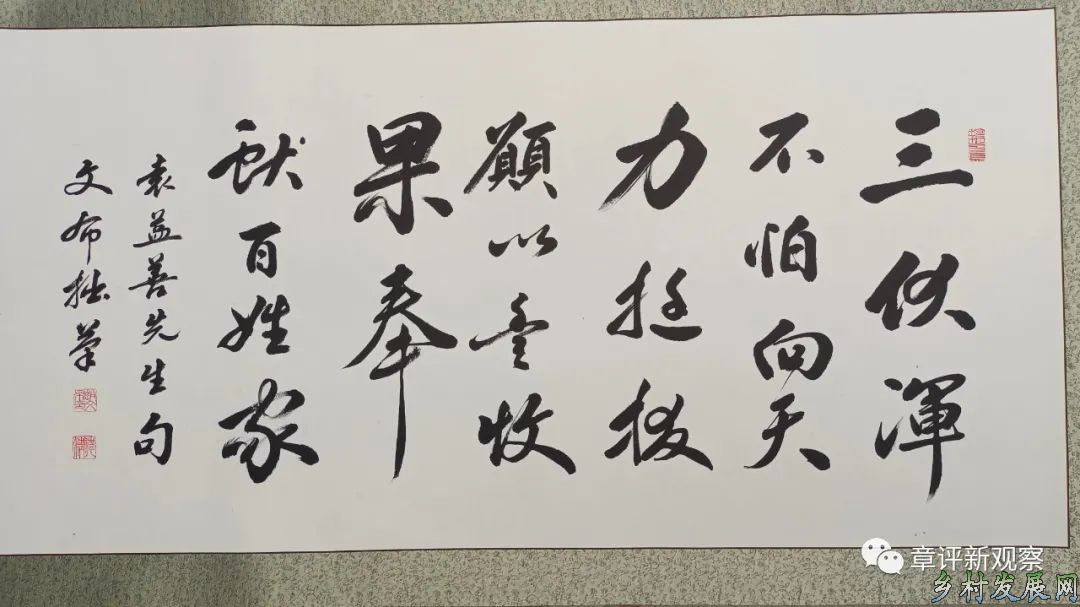 三伏渾
不怕向天
力挺拔
願以豊收
果奉
献百姓家
袁益善先生句
文布拙筆
章评新观察
乡村发展网